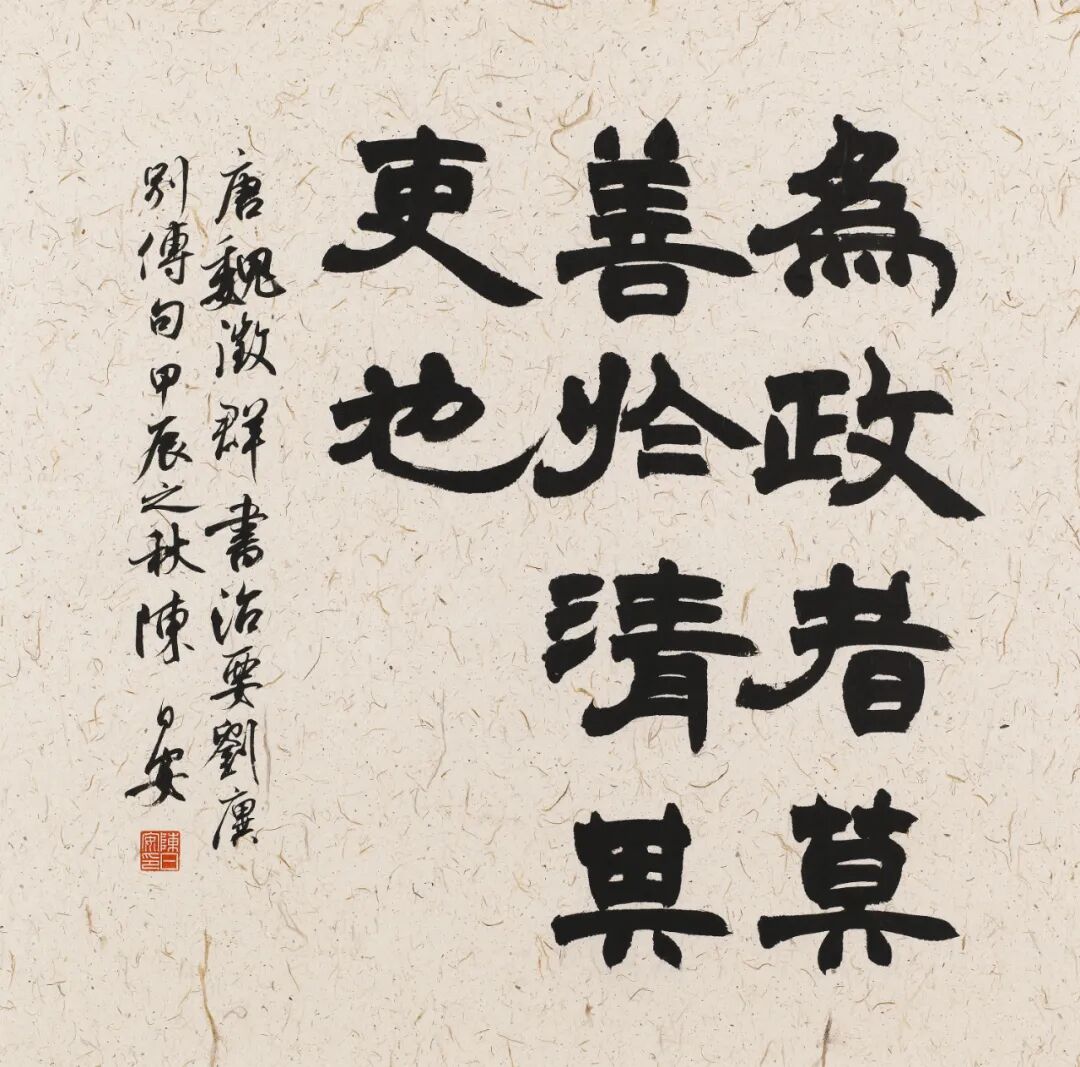 為政者莫
善於清其
吏也
唐魏徵群書治要劉廙
別傳句甲辰之秋陳日安
陳日安印